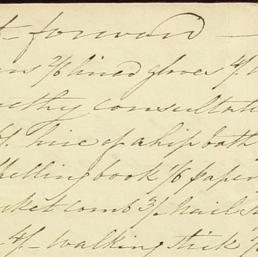 t forward
ns 2/6 lined gloves 4/
orthy consultati
hire of a hip bath
helling book 1/6 paper
cket comb 3/ nails
4/- walking stick